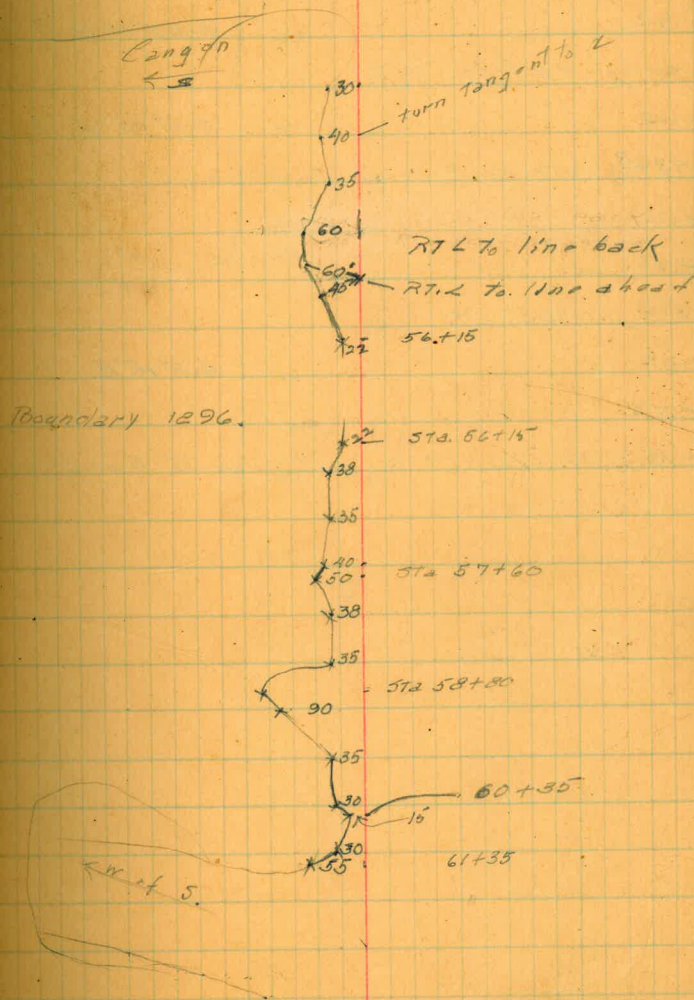 Canyon
← S
30
turn tangent to L
40
35
60
RT L to line back
60
RT. L to line ahead
45
56+15
22
Boundary 1896.
22 Sta. 56+15
38
35
40
50 Sta 57+60
38
35
Sta 58+80
90
35
60+35
30
15
30
61+35
55
← W of S.